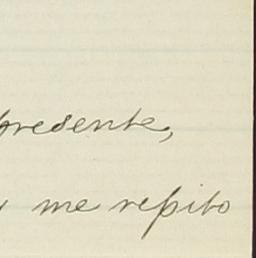 presente,
me repito